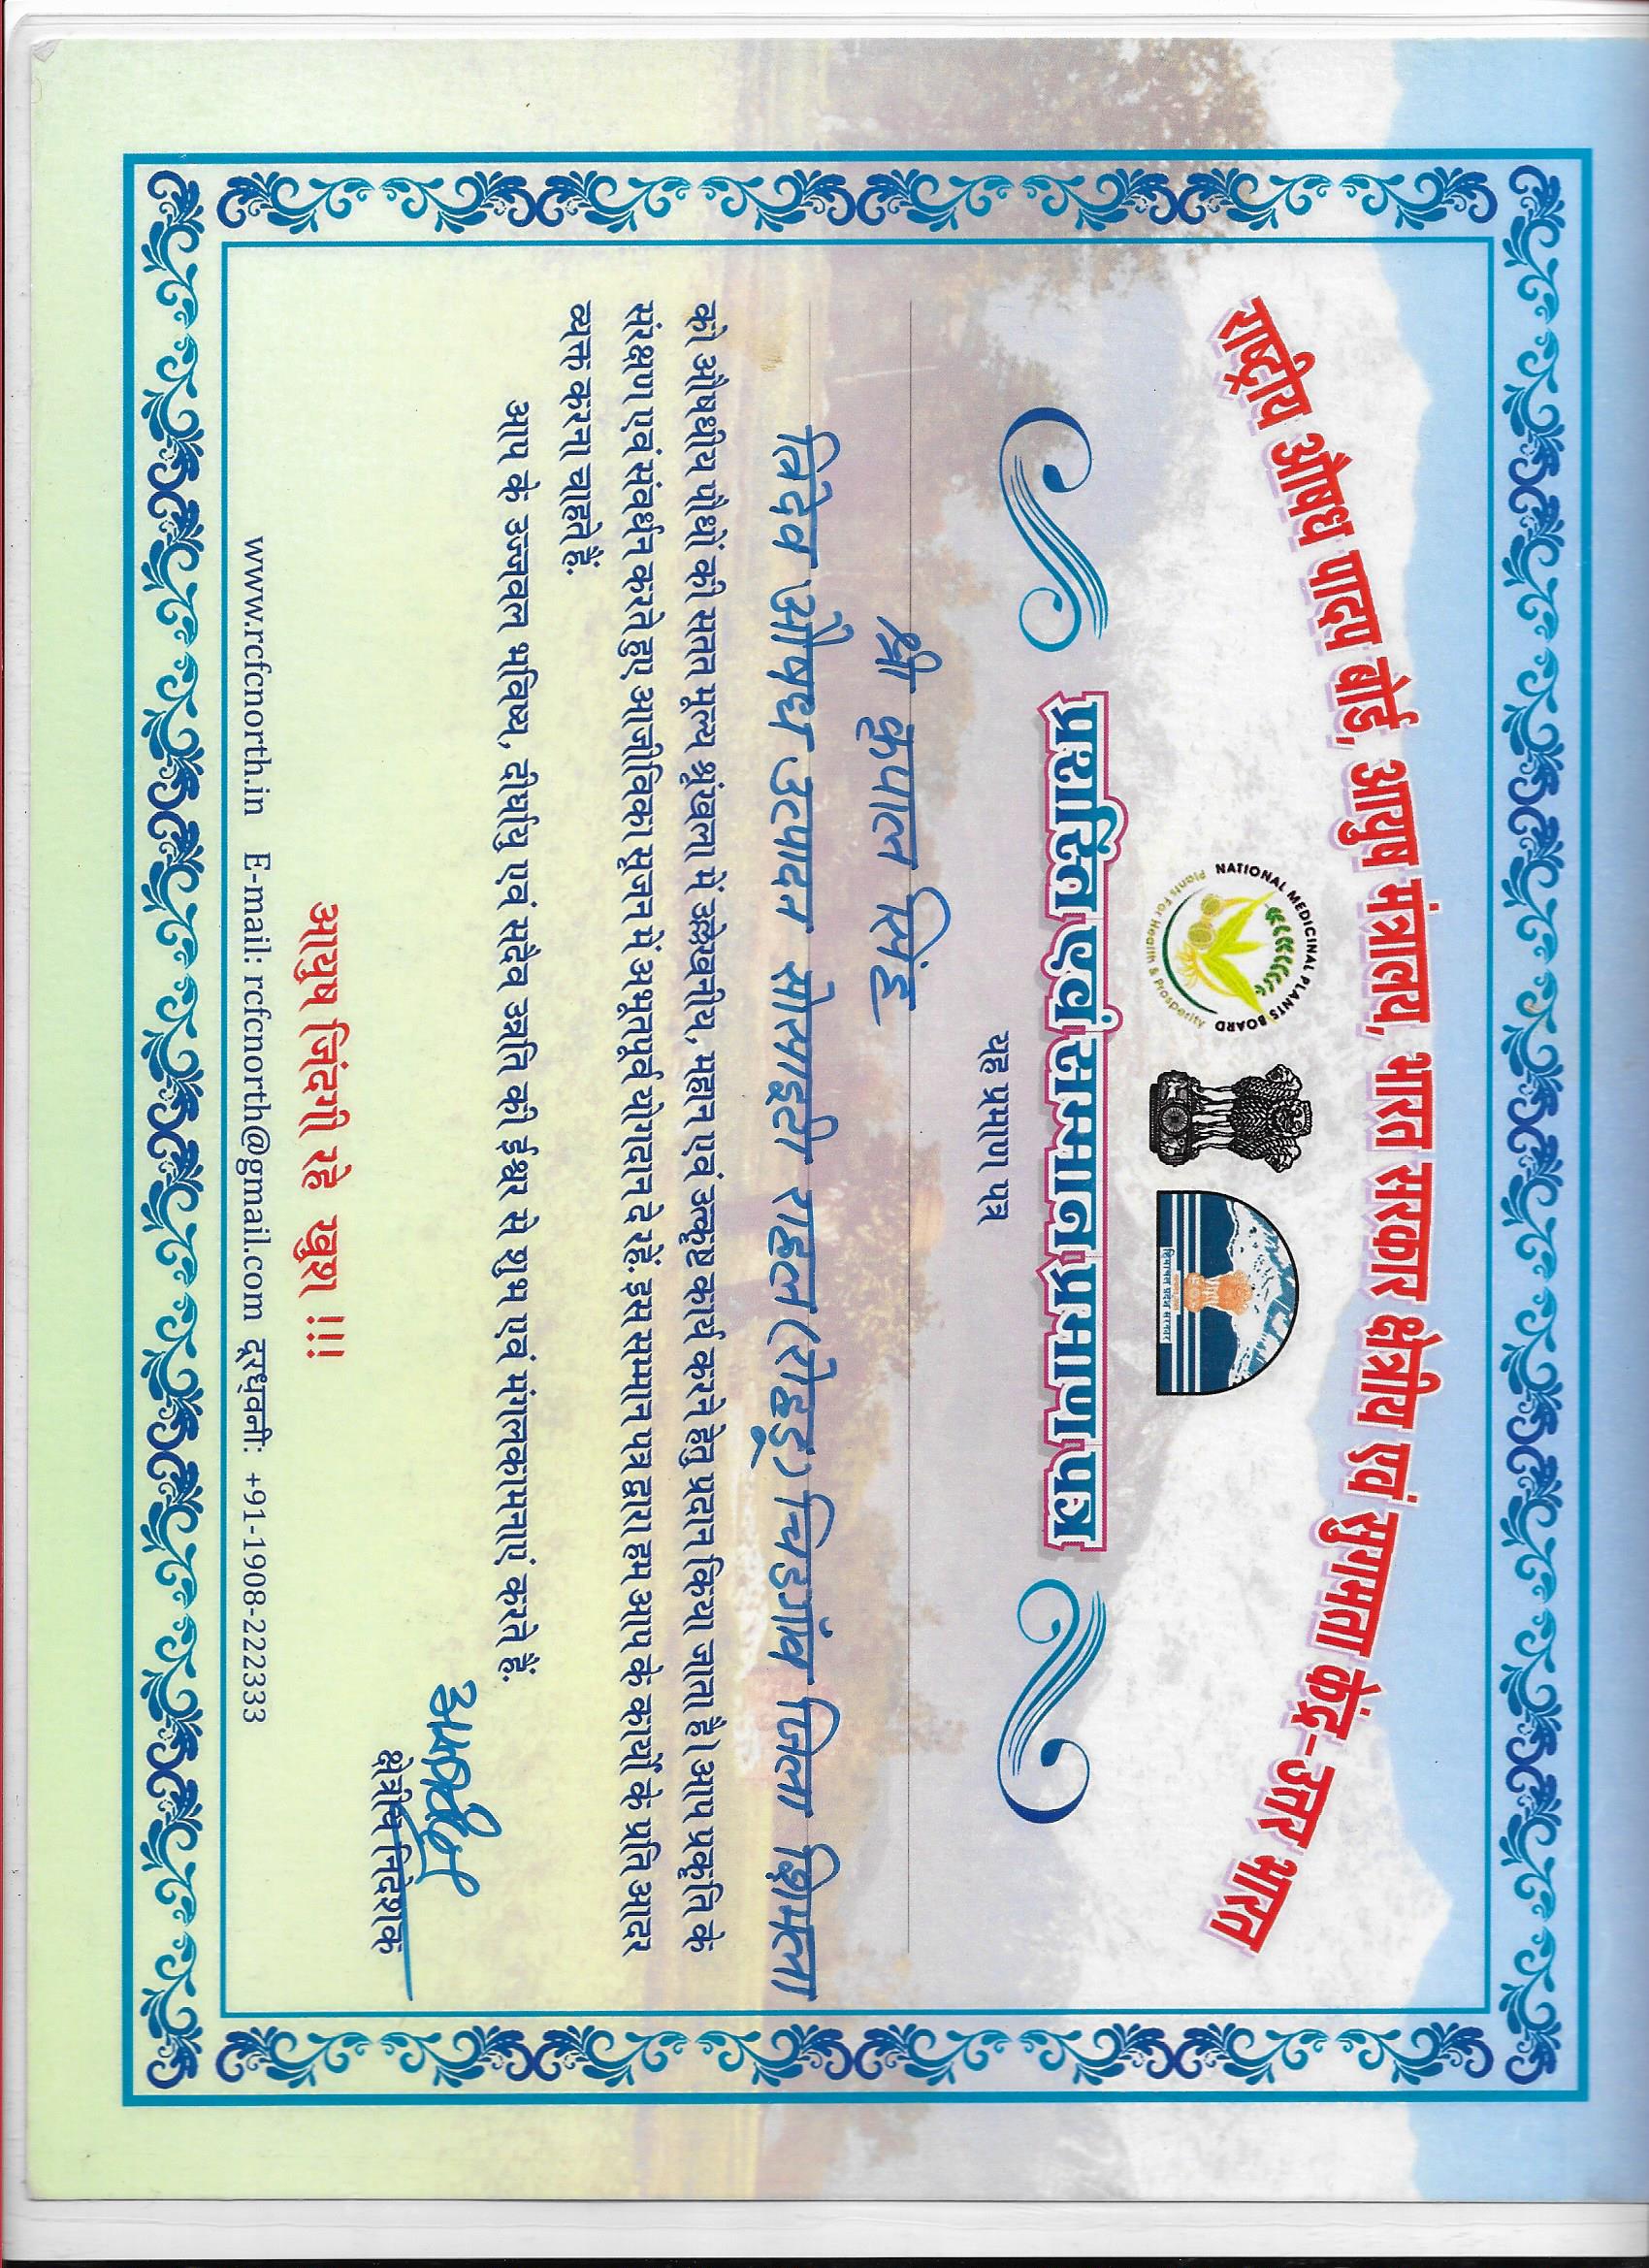 राष्ट्रीय औषध पादप बोर्ड, आयुष मंत्रालय, भारत सरकार क्षेत्रीय एवं सुगमता केंद्र-उत्तर भारत
NATIONAL MEDICINAL PLANTS BOARD
Plants For Health & Prosperity
हिमाचल प्रदेश सरकार
प्रशस्ति एवं सम्मान प्रमाण पत्र
यह प्रमाण पत्र
श्री कृपाल सिंह
त्रिदेव औषध उत्पादन सोसाइटी राहल (रोहडू) चिडगाँव जिला शिमला
को औषधीय पौधों की सतत मूल्य श्रृंखला में उल्लेखनीय, महान एवं उत्कृष्ट कार्य करने हेतु प्रदान किया जाता है। आप प्रकृति के
संरक्षण एवं संवर्धन करते हुए आजीविका सृजन में अभूतपूर्व योगदान दे रहें. इस सम्मान पत्र द्वारा हम आप के कार्यों के प्रति आदर
व्यक्त करना चाहते हैं.
आप के उज्जवल भविष्य, दीर्घायु एवं सदैव उन्नति की ईश्वर से शुभ एवं मंगलकामनाएं करते हैं.
क्षेत्रीय निदेशक
आयुष जिंदगी रहे खुश !!!
www.rcfcnorth.in E-mail: rcfcnorth@gmail.com दूरध्वनी: +91-1908-222333